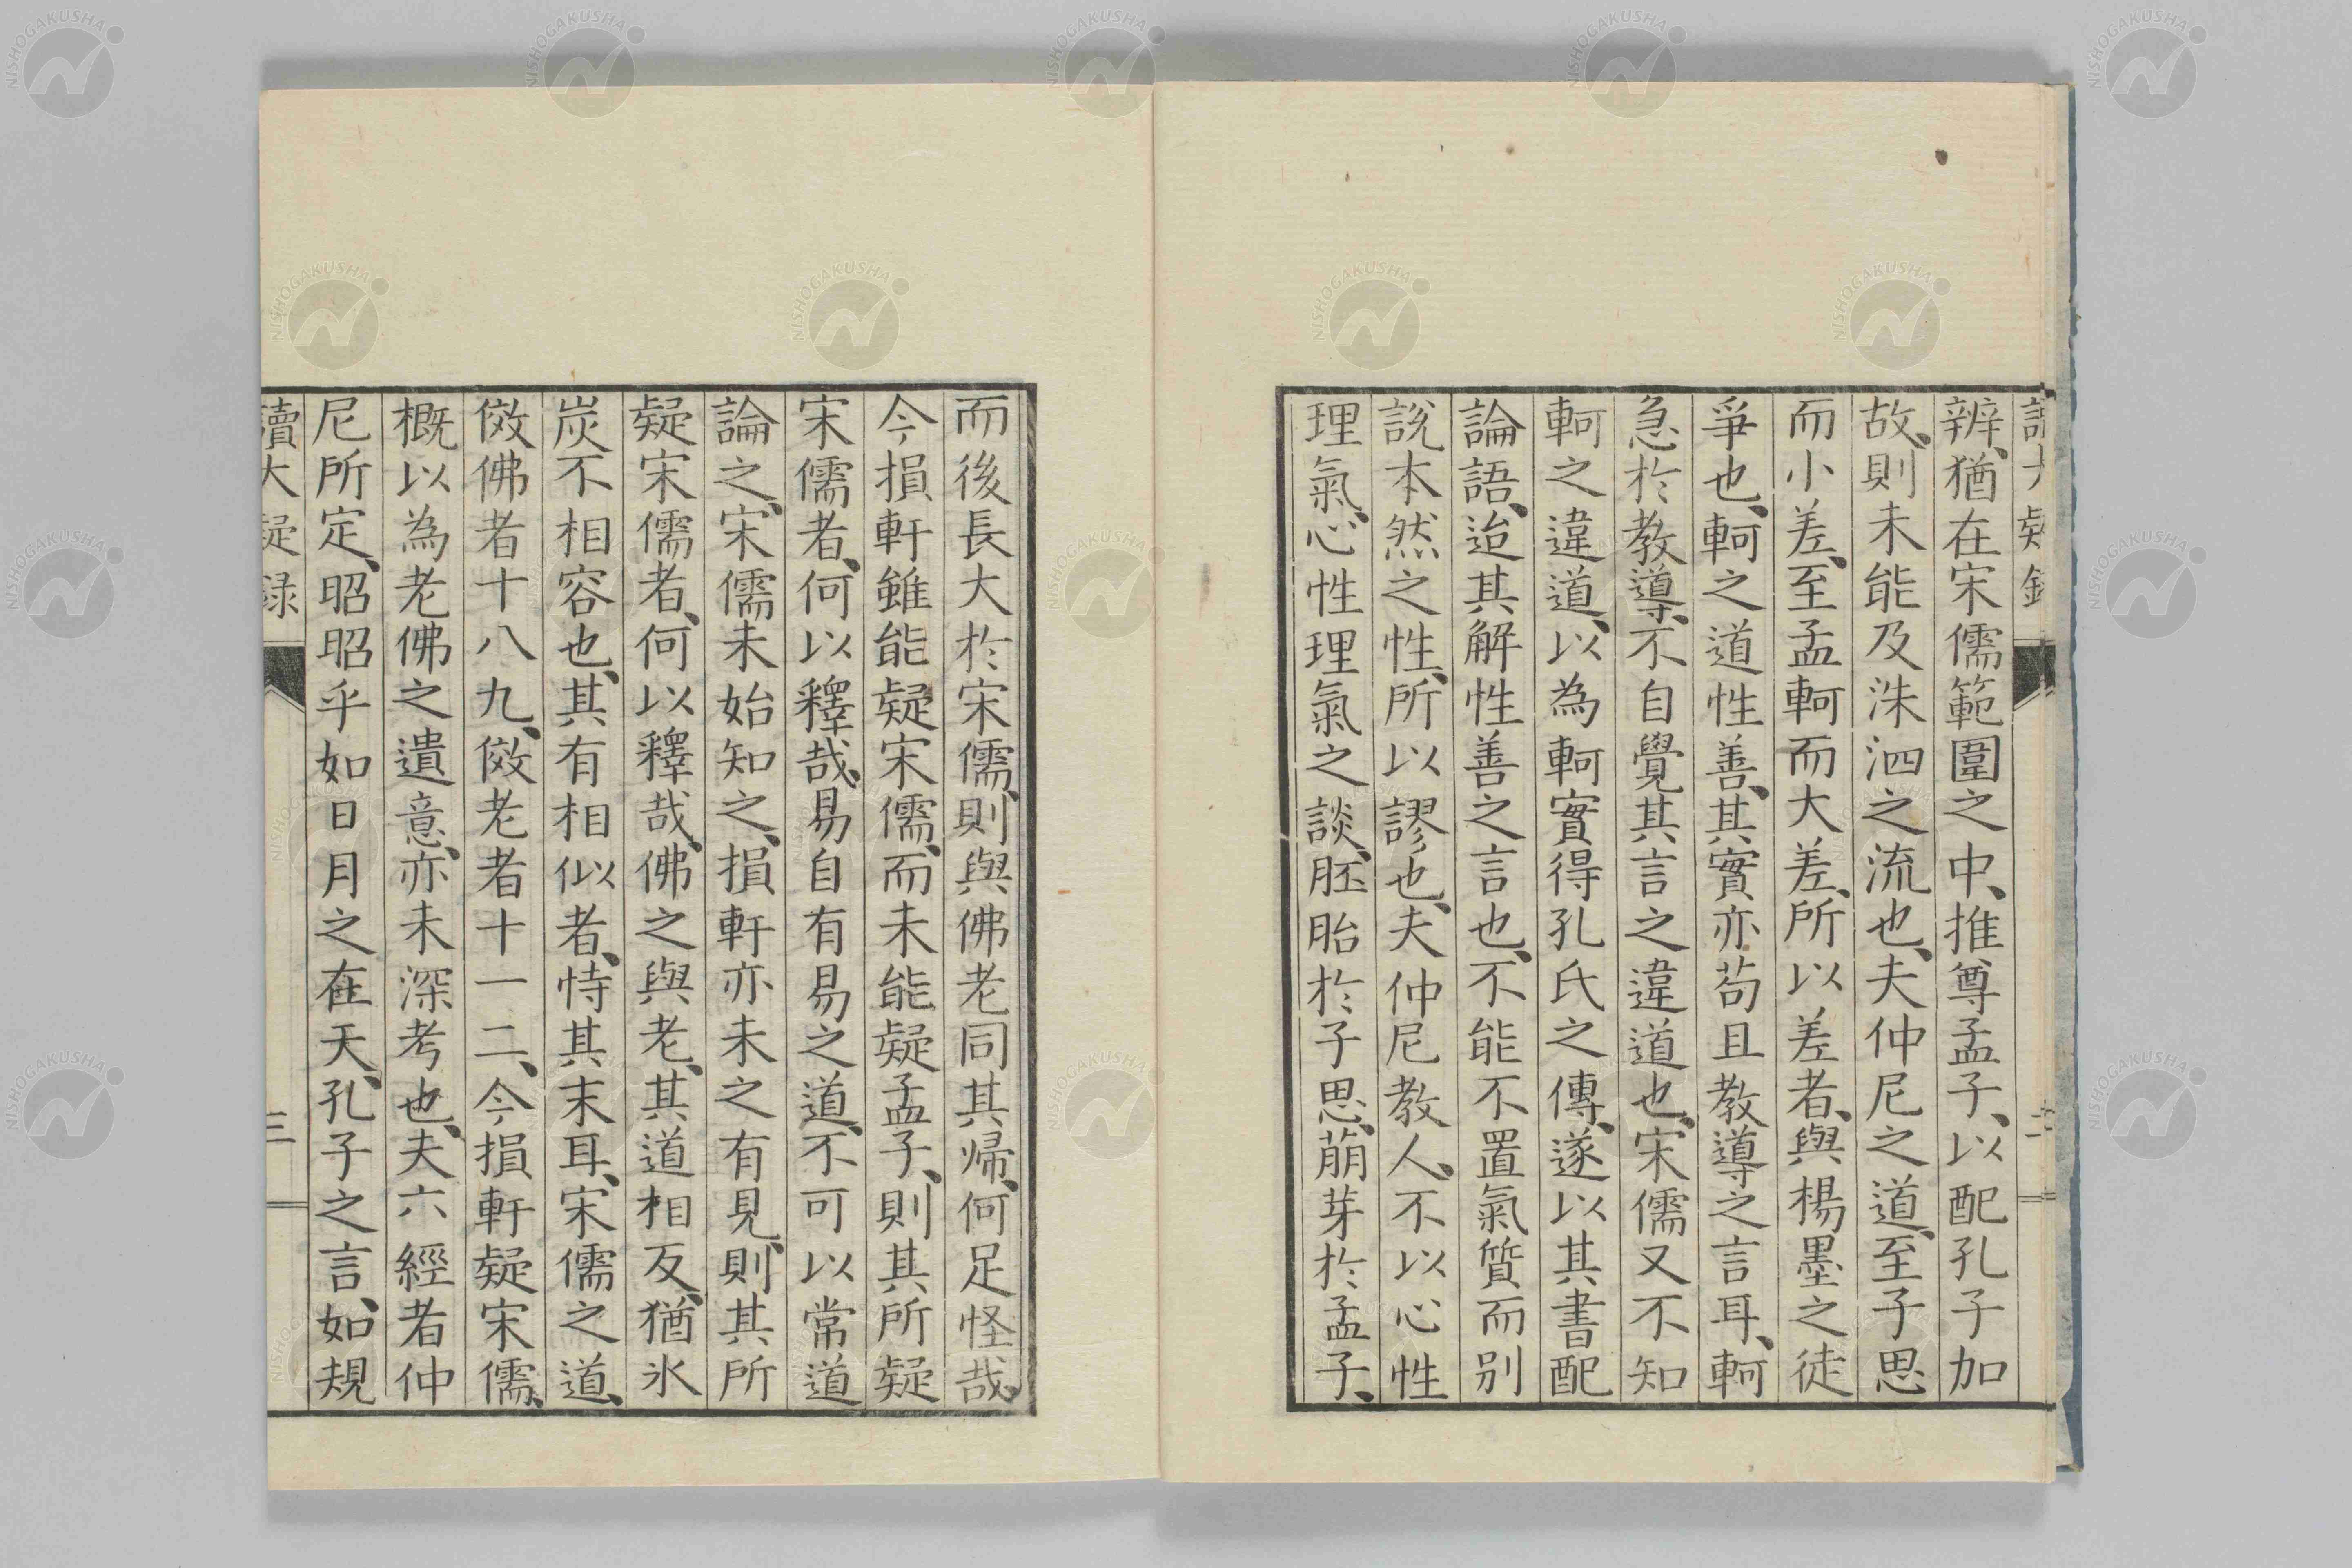 讀大疑錄
辨、猶在宋儒範圍之中、推尊孟子、以配孔子加
故、則未能及洙泗之流也、夫仲尼之道、至子思
而小差、至孟軻而大差、所以差者、與楊墨之徒
爭也、軻之道性善、其實亦苟且教導之言耳、軻
急於教導、不自覺其言之違道也、宋儒又不知
軻之違道、以為軻實得孔氏之傳、遂以其書配
論語、迨其解性善之言也、不能不置氣質而別
說本然之性、所以謬也、夫仲尼教人、不以心性
理氣、心性理氣之談、胚胎於子思、萠芽於孟子、
而後長大於宋儒、則與佛老同其帰、何足怪哉、
今損軒雖能疑宋儒、而未能疑孟子、則其所疑
宋儒者、何以釋哉、易自有易之道、不可以常道
論之、宋儒未始知之、損軒亦未之有見、則其所
疑宋儒者、何以釋哉、佛之與老、其道相反、猶氷
炭不相容也、其有相似者、恃其末耳、宋儒之道、
傚佛者十八九、傚老者十一二、今損軒疑宋儒、
概以為老佛之遺意、亦未深考也、夫六經者仲
尼所定、昭昭乎如日月之在天、孔子之言、如規
讀大疑録
三
NISHOGAKUSHA